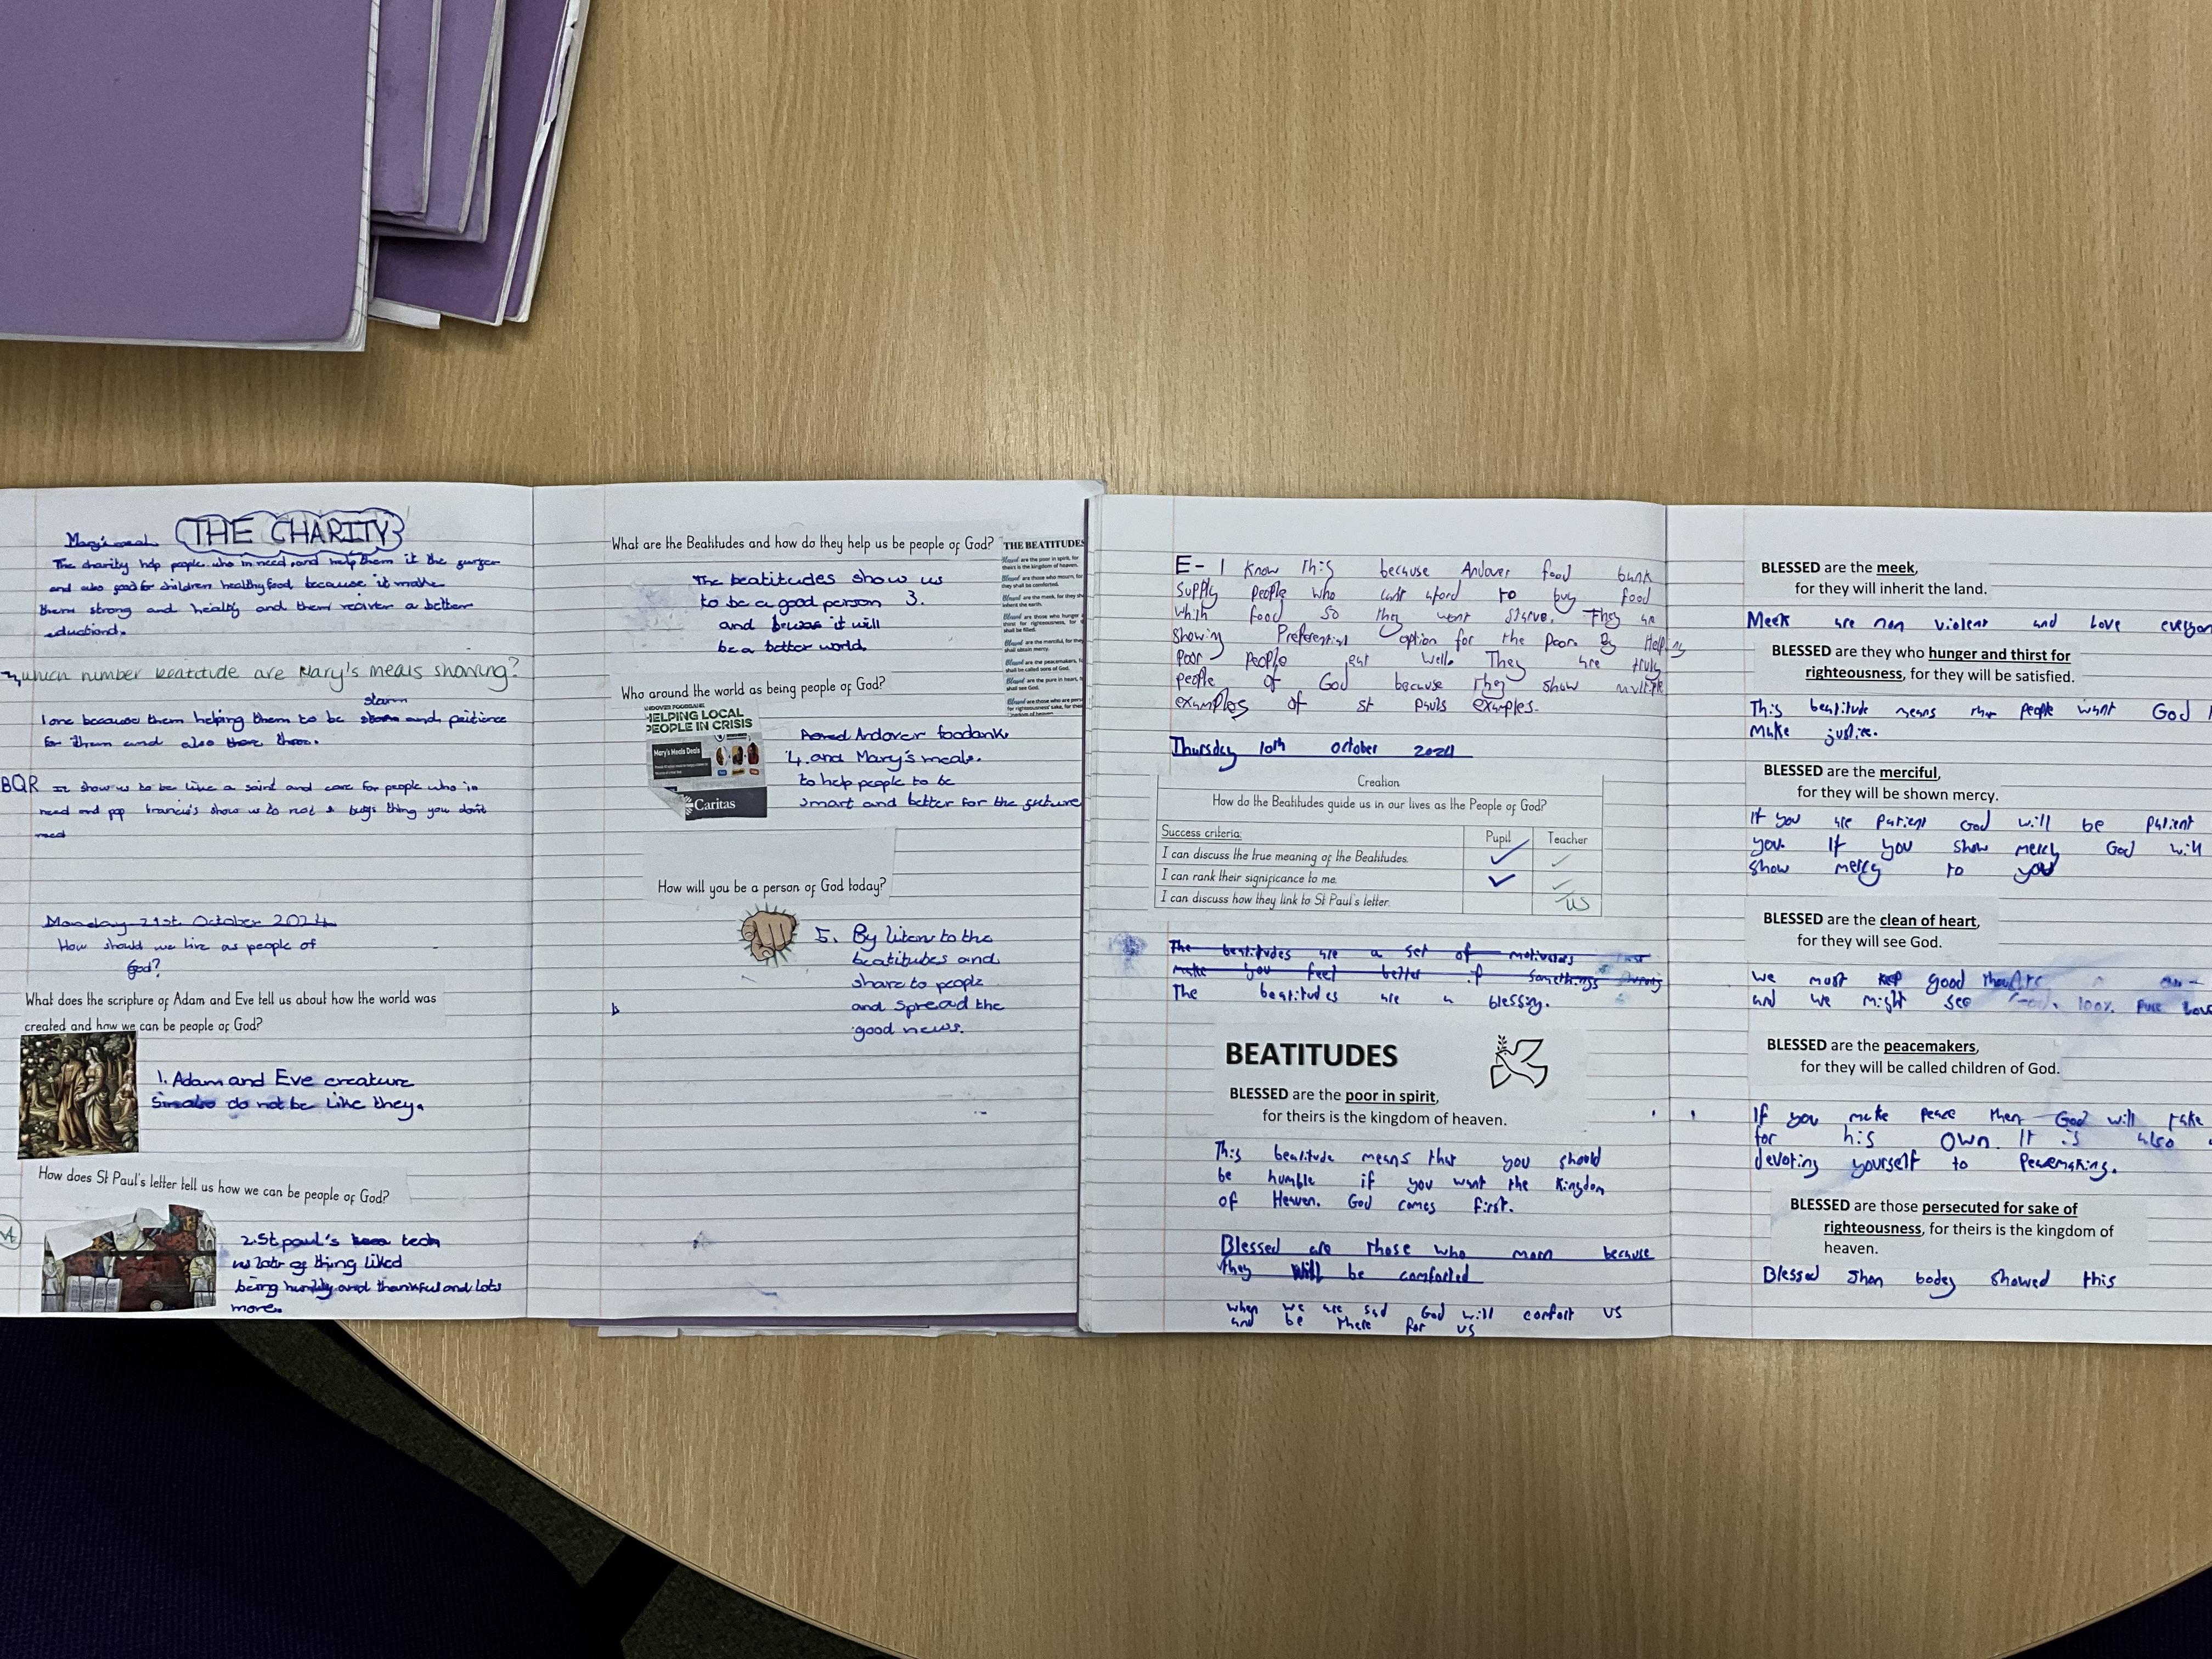 Mary's meal THE CHARITY
The charity help people who in need and help them it the
and also good for children healthy food because it make
them strong and healthy and them reciver a better
eductiond.
which number beatitude are Mary's meals showing?
starm
I one because them helping them to be starm and paitience
for them and also there theor.
BQR It show us to be like a saint and care for people who in
need and pop francis's show us to not & bugs thing you don't
need
Monday 21st October 2024
How should we live as people of
God?
What does the scripture of Adam and Eve tell us about how the world was
created and how we can be people of God?
1. Adam and Eve creature
do not be like they.
How does St Paul's letter tell us how we can be people of God?
2. St paul's tech
us lots of thing liked
being and thankful and lots
more.
What are the Beatitudes and how do they help us be people of God?
THE BEATITUDES
The beatitudes show us
to be a good person 3.
and it will
be a better world.
Who around the world as being people of God?
ANDOVER FOODBANK
HELPING LOCAL
PEOPLE IN CRISIS
Mary's Meals Deals
Caritas
Andover foodank
4. and Mary's meals.
to help people to be
smart and better for the future
How will you be a person of God today?
5. By liten to the
beatitubes and
share to people
and spread the
good news.
E- I know this because Andover food bank
supply people who cant aford to buy food
with food so they wont starve. They are
showing Preferential option for the Poor. By Helping
poor people eat well. They are truly
people of God because They show multiple
examples of st Pauls examples.
Thursday 10th october 2024
Creation
How do the Beatitudes guide us in our lives as the People of God?
Success criteria: Pupil Teacher
I can discuss the true meaning of the Beatitudes.
I can rank their significance to me.
I can discuss how they link to St Paul's letter. US
The beatitudes are a set of
make you feel better if somethings
The beatitudes are a blessing.
BEATITUDES
BLESSED are the poor in spirit,
for theirs is the kingdom of heaven.
This beatitude means that you should
be humble if you want the Kingdom
of Heaven. God comes first.
Blessed are those who morn because
they will be comforted
when we are sad God will confort us
and be there for us
BLESSED are the meek,
for they will inherit the land.
Meek are non violent and love
BLESSED are they who hunger and thirst for
righteousness, for they will be satisfied.
This beatitude means that people want God
make justice.
BLESSED are the merciful,
for they will be shown mercy.
If you are patient God will be patient
you. If you show mercy God will
show mercy to you
BLESSED are the clean of heart,
for they will see God.
we must keep good
and we might see 100% pure
BLESSED are the peacemakers,
for they will be called children of God.
If you make peace then God will take
for his own. It is also
devoting yourself to Peacemaking.
BLESSED are those persecuted for sake of
righteousness, for theirs is the kingdom of
heaven.
Blessed Jhon bodey showed this